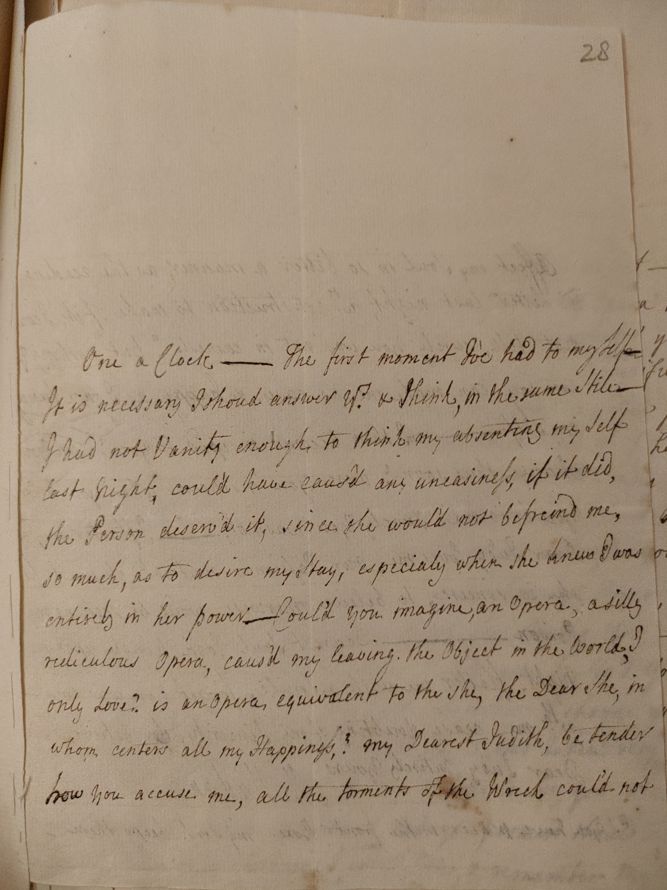 28
One a Clock — The first moment I've had to my Self —
It is necessary I shoud answer yrs. & I think, in the same Stile —
I had not Vanity enough, to think my absenting my Self
last Night, could have caus'd any uneasiness, if it did,
the Person deserv'd it, since she would not befreind me,
so much, as to desire my Stay, especialy when she knew I was
entirely in her power — Could you imagine, an Opera, a silly
rediculous Opera, caus'd my leaving the Object in the World, I
only Love? is an Opera, equivalent to the she, the Dear She, in
whom centers all my Happiness,? my Dearest Judith, be tender
how you accuse me, all the torments of the Wreck could not